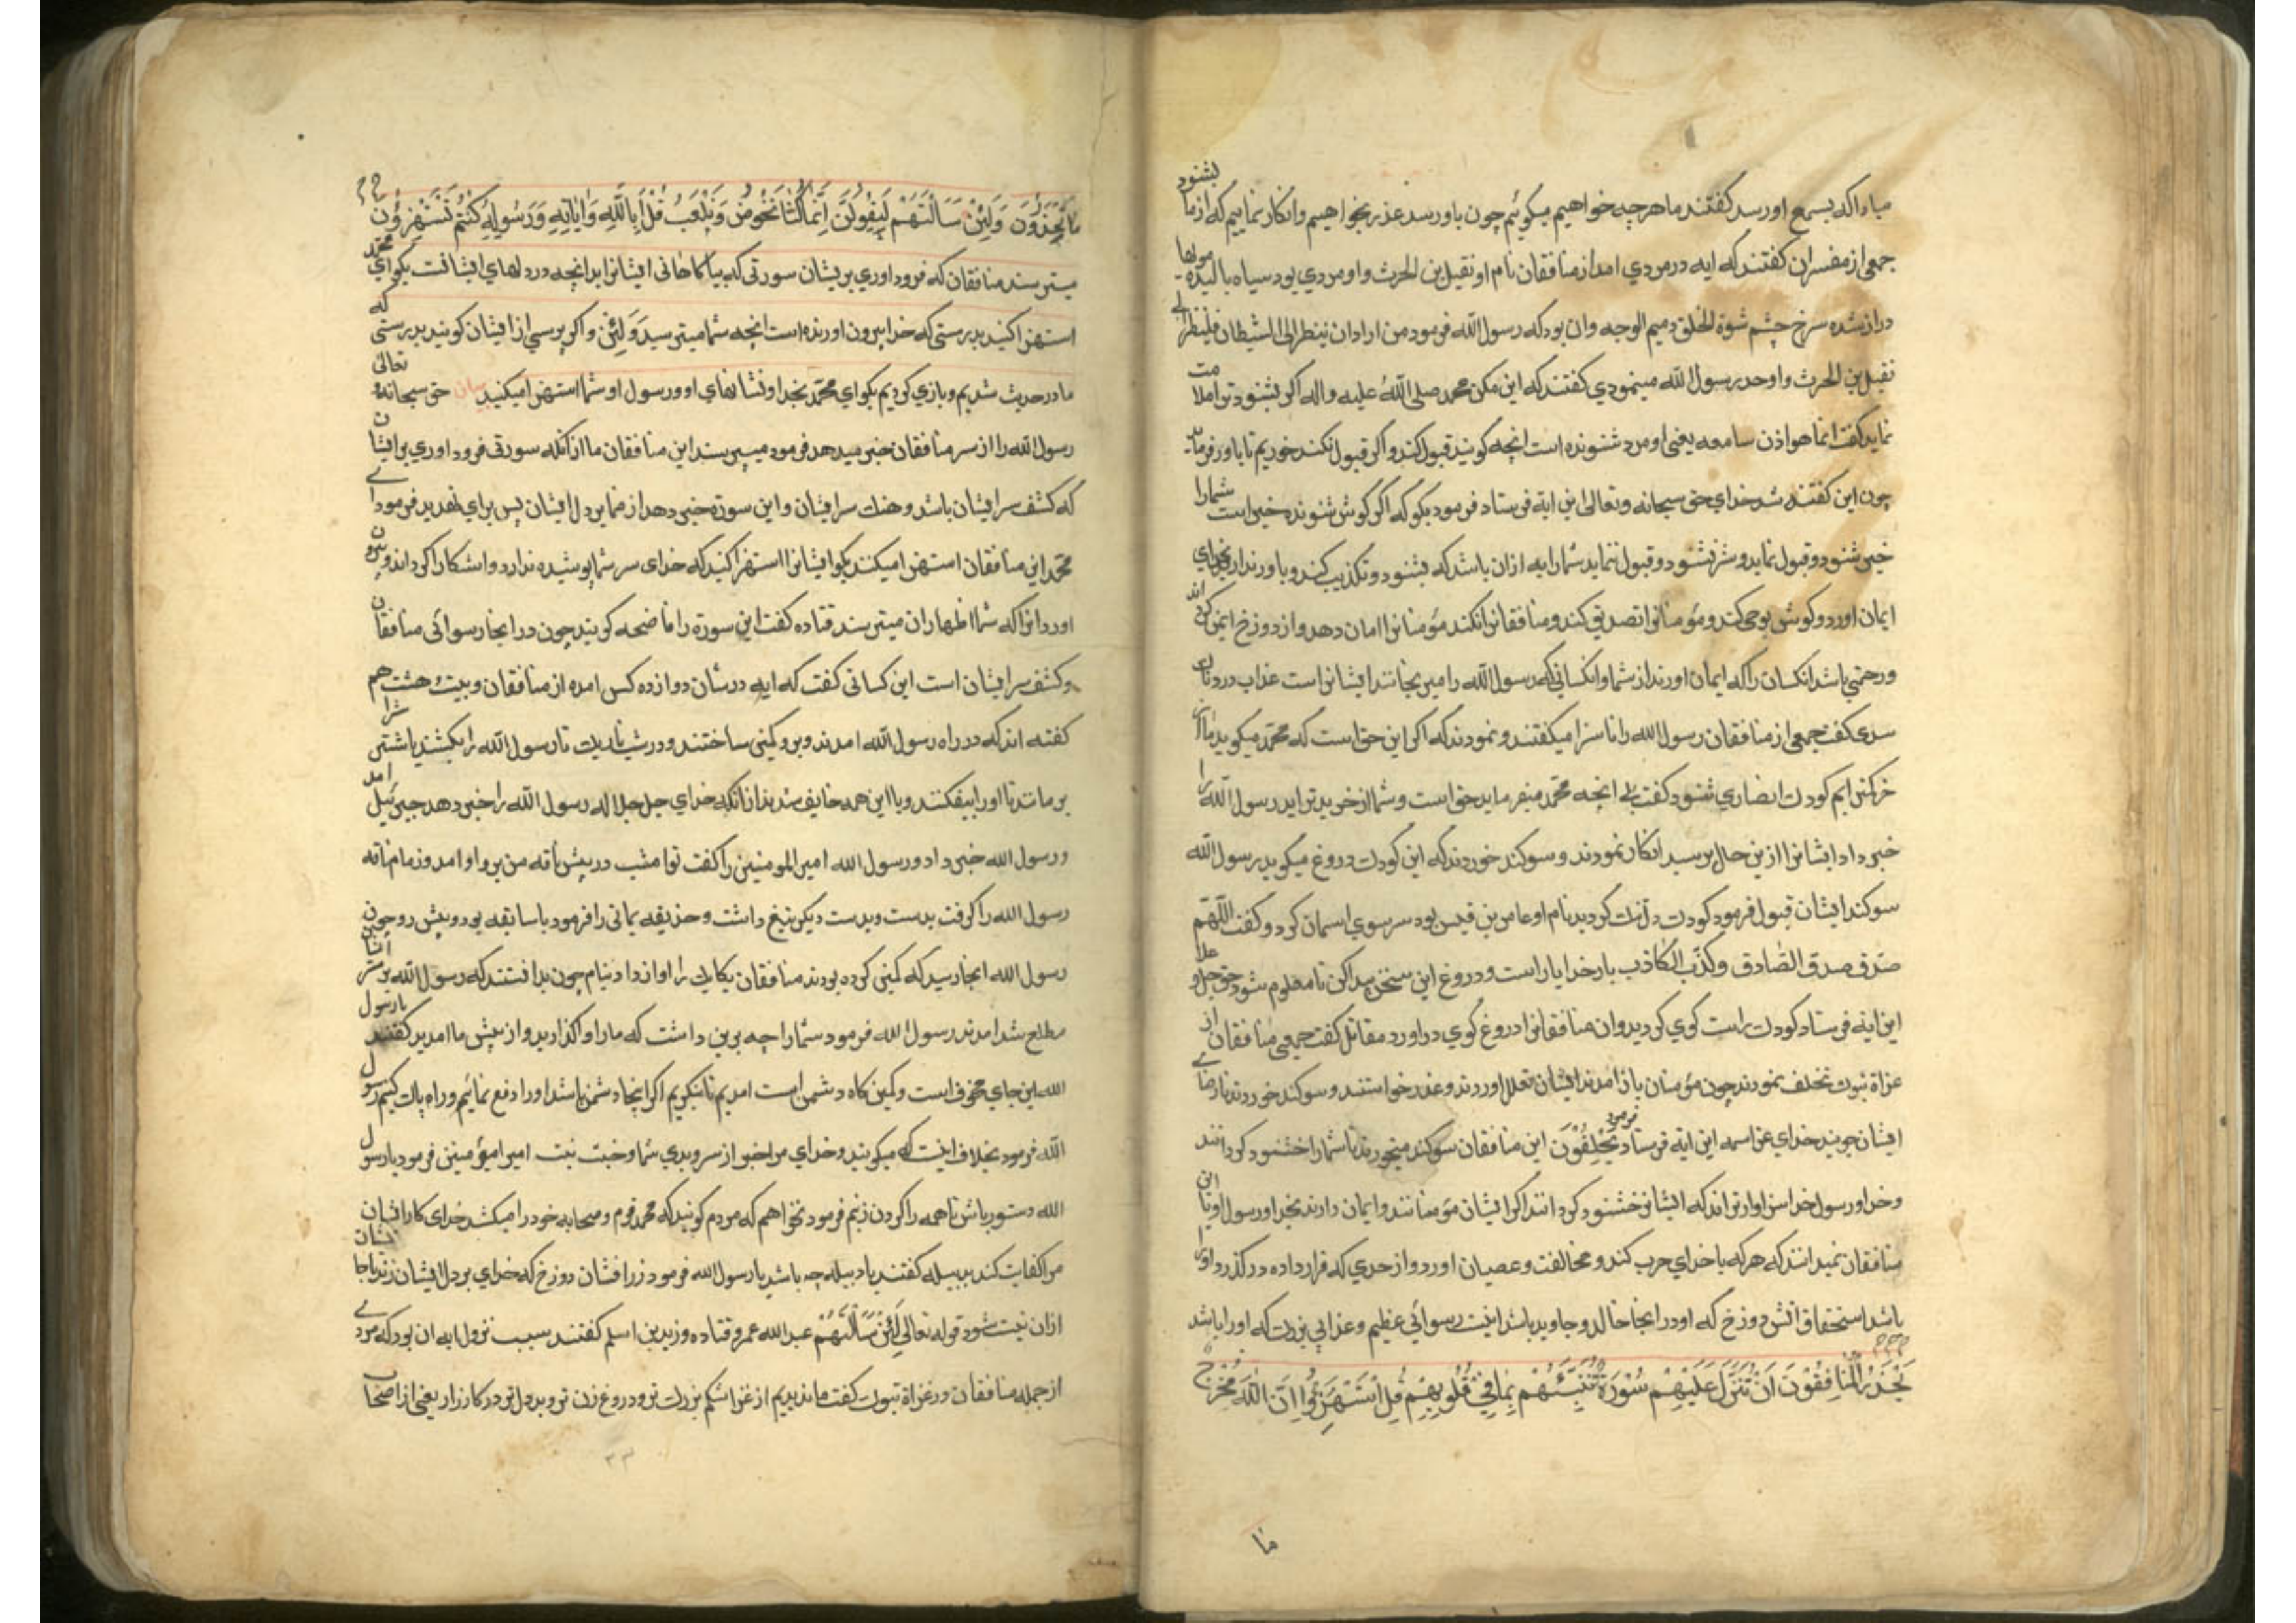 مباداکه بسمع اورسد کفتند ما هرچه خواهیم میکوئیم چون باورسد عذر بخواهیم وانکار نماییم که ازما بشنود
جمعی از مفسران کفتند که ایه درمردی امد از منافقان نام او نفیل بن الحرث واومردی بود سیاه بالیده مویها
دراز شده سرخ چشم شوة الخلق دمیم الوجه وان بود که رسول الله فرمود من اراد ان ینظر الی الشیطان فلینظر الی
نفیل بن الحرث واوحد رسول الله مینمودی کفتند که این مکن محمد صلی الله علیه واله اکر بشنود ترا ملامت
نماید کفت انما هو اذن سامعه یعنی او مرد شنونده است انچه کویند قبول کند واکر قبول نکند خوریم تا باور فرماید
چون این کفتند شد خدای حق سبحانه وتعالی این ایة فرستاد فرمود بکو که اکر کوش شنونده خیر است شمارا
خیر شنود وقبول نماید وشر نشنود وقبول ننماید شمارا به ازان باشد که بشنود وتکذیب کند وباور ندارد بخدای
ایمان اورد وکوش بوحی کند ومؤمنانرا تصدیق کند ومنافقانرا نکند مؤمنانرا امان دهد واز دوزخ ایمن کرداند
ورحمتی باشد انکسان راکه ایمان اورند از شما وانکسانی که رسول الله را میرنجانند ایشانرا است عذاب دردناک
سدی کفت جمعی از منافقان رسول الله را ناسزا میکفتند ونمودند که اکر این حق است که محمد میکوید ما از
خرکمتر ایم کودک انصاری شنود کفت بلی انچه محمد میفرماید حق است وشما از خر بدتراید رسول الله را
خبر داد ایشانرا ازین حال پرسید انکار نمودند وسوکند خوردند که این کودک دروغ میکوید رسول الله
سوکند ایشان قبول فرمود کودک دلتنک کردید نام او عامر بن قیس بود سر سوی اسمان کرد وکفت اللهم
صدق صدق الصادق وکذب الکاذب بار خدایا راست ودروغ این سخن پیدا کن تا معلوم شود حق جل وعلا
این ایة فرستاد کودک راست کوی کردید وان منافقانرا دروغ کوی دراورد مقاتل کفت جمعی منافقان از
غزاة تبوک تخلف نمودند چون مؤمنان باز امدند ایشان تعلل اوردند وعذر خواستند وسوکند خوردند تا رضای
ایشان جویند خدای عز اسمه این ایة فرستاد یحلفون فرمود این منافقان سوکند میخورند تا شمارا خشنود کردانند
وخدا ورسول خدا سزاوارتراند که ایشانرا خشنود کردانند اکر ایشان مؤمنانند وایمان دارند بخدا ورسول او یا این
منافقان نمیدانند که هرکه با خدای حرب کند ومخالفت وعصیان اورد واز حدی که قرار داده درکذرد اورا
باشد استحقاق اتش دوزخ که اودر انجا خالد وجاوید باشد اینت رسوائی عظیم وعذابی بزرک که اورا باشد
یَحْذَرُ الْمُنَافِقُونَ اَنْ تُنَزَّلَ عَلَیْهِمْ سُورَةٌ تُنَبِّئُهُمْ بِمَا فِی قُلُوبِهِمْ قُلِ اسْتَهْزِؤُا اِنَّ اللهَ مُخْرِجٌ
ما
مَا تَحْذَرُونَ وَلَئِنْ سَاَلْتَهُمْ لَیَقُولُنَّ اِنَّمَا کُنَّا نَخُوضُ وَنَلْعَبُ قُلْ اَبِاللهِ وَایَاتِهِ وَرَسُولِهِ کُنْتُمْ تَسْتَهْزِؤُنَ
میترسند منافقان که فرود اوری بریشان سورتی که بیاکاهانی ایشانرا بدانچه در دلهای ایشانست بکو ای محمد
استهزا کنید بدرستی که خدا بیرون اورنده است انچه شما میترسید وَلَئِنْ واکر پرسی از ایشان کویند بدرستی که
ما درحدیث شدیم وبازی کردیم بکو ای محمد بخدا ونشانهای او ورسول او شما استهزا میکنید بیان حق سبحانه وتعالی
رسول الله را از سر منافقان خبر میدهد فرمود میترسند این منافقان ما از انکه سورتی فرود اوری بر ایشان
که کشف سر ایشان باشد وهتک سر ایشان واین سورة خبر دهد از ضمایر دل ایشان پس برای تهدید فرمود ای
محمد این منافقان استهزا میکنند بکو ایشانرا استهزا کنید که خدای سر شما پوشیده ندارد واشکارا کرداند وبیرون
اورد انرا که شما اظهار ان میترسید قتاده کفت این سورة را فاضحه کویند چون در انجا رسوائی منافقان
وکشف سر ایشان است ابن کسانی کفت که ایه در شان دوازده کس امده از منافقان وبیست وهشت هم
کفته اند که در راه رسول الله امدند وبرو کمین ساختند ودر شب تاریک تا رسول الله را بکشند یا شترا
برمانند تا اورا بیفکنند وبا این همه خایف شدند از انکه خدای جل جلاله رسول الله را خبر دهد جبرئیل امد
ورسول الله خبر داد ورسول الله امیر المومنین را کفت تو امشب در پیش ناقه من برو او امد وزمام ناقه
رسول الله را کرفت بدست وبدست دیکر تیغ داشت وحذیفه یمانی را فرمود با سابقه بود وپیش رو چون
رسول الله انجا رسید که کمین کرده بودند منافقان یکایک را اواز داد بنام چون بدانستند که رسول الله بر سر ایشان
مطلع شد امدند رسول الله فرمود شمارا چه برین داشت که مارا واکذارید واز پیش ما امدید کفتند یا رسول
الله این جای مخوف است وکمین کاه دشمن است امدیم تا بنکریم اکر اینجا دشمن باشد اورا دفع نمائیم وراه پاک کنیم رسول
الله فرمود بخلاف اینست که میکویید وخدای مرا خبر از سر وبدی شما وخبث نیت امیر المؤمنین فرمود یا رسول
الله دستور باش تا همه را کردن زنیم فرمود نخواهم که مردم کویند که محمد قوم وصحابه خود را میکشد خدای کار ایشان
مرا کفایت کند بدبیله کفتند یا دبیله چه باشد یا رسول الله فرمود زرافشان دوزخ که خدای بر دل ایشان زند تا جانشان
ازان نیست شود قوله تعالی لَئِنْ سَاَلْتَهُمْ عبد الله عمر وقتاده وزید بن اسلم کفتند سبب نزول ایه ان بود که مردی
از جمله منافقان در غزاة تبوک کفت ما ندیدیم از غزا شکم بزرک تر ودروغ زن تر وبددل تر در کارزار یعنی از اصحاب